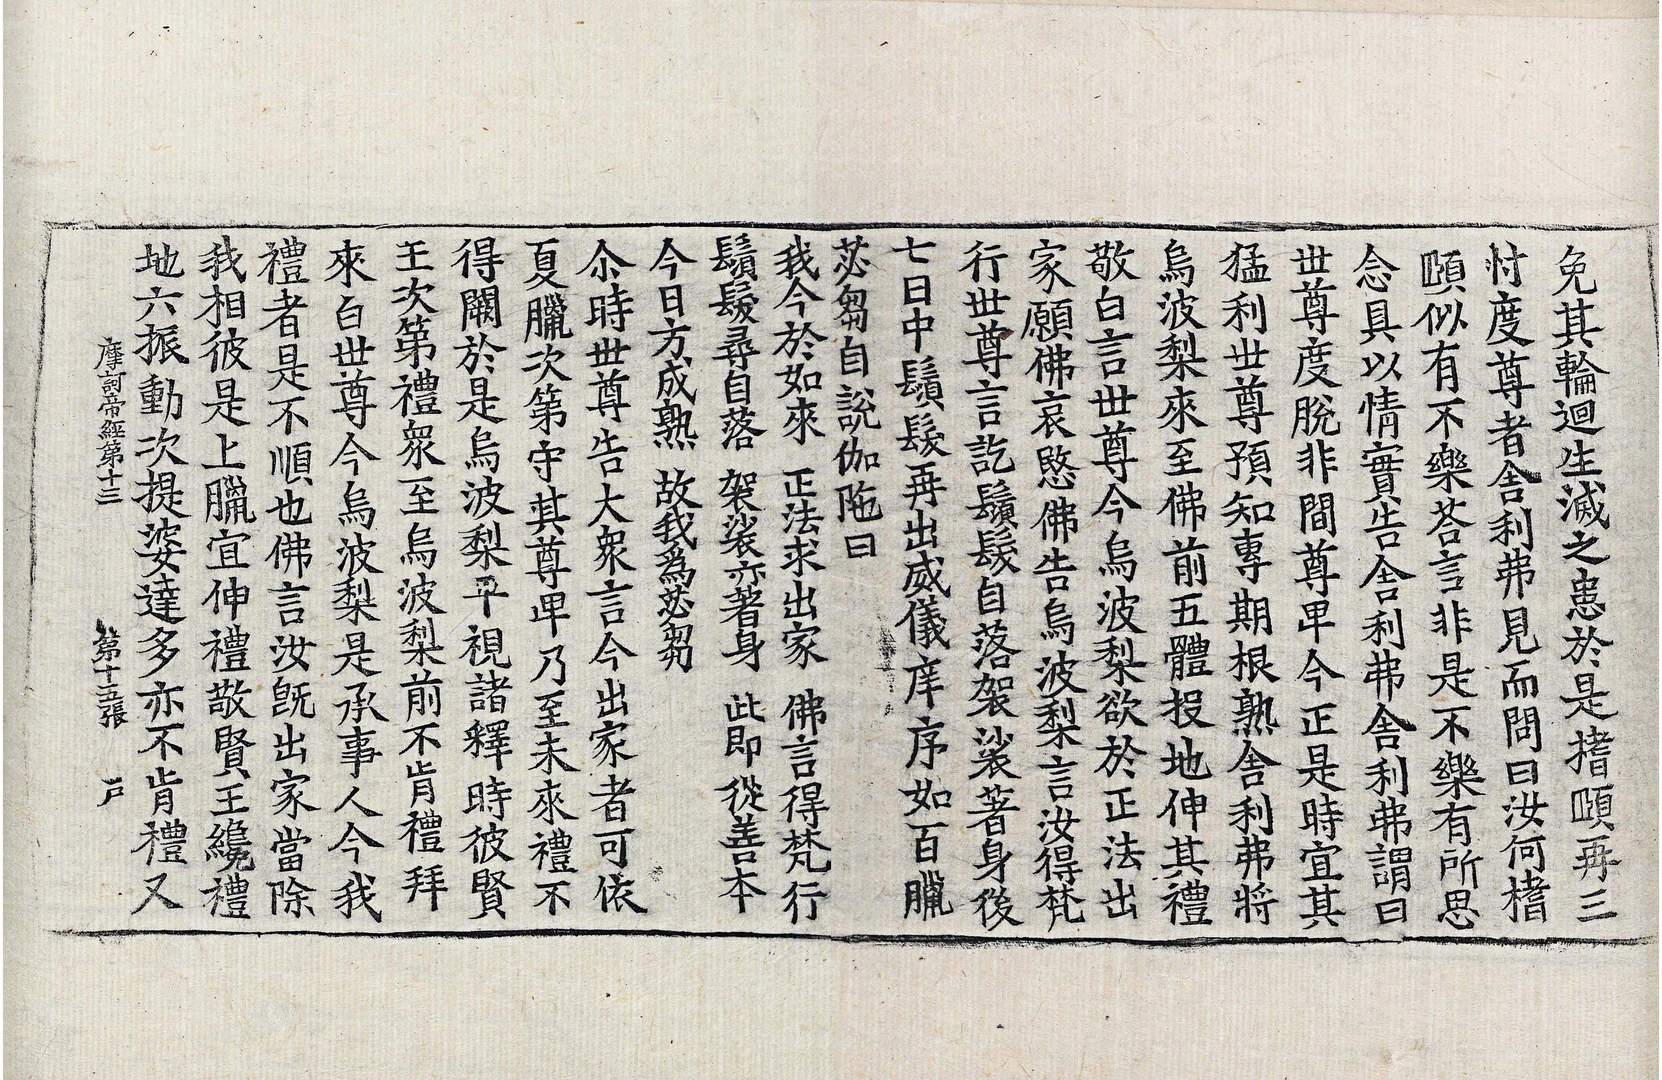 免其輪迴生滅之患於是搘頤再三
忖度尊者舍利弗見而問曰汝何搘
頤似有不樂荅言非是不樂有所思
念具以情實告舍利弗舍利弗謂曰
世尊度脫非間尊卑今正是時宜其
猛利世尊預知專期根熟舍利弗將
烏波梨來至佛前五體投地伸其禮
敬白言世尊今烏波梨欲於正法出
家願佛哀愍佛告烏波梨言汝得梵
行世尊言訖鬚髮自落袈裟著身後
七日中鬚髮再出威儀庠序如百臘
苾芻自說伽陁曰
我今於如來　正法求出家　佛言得梵行
鬚髮尋自落　袈裟亦著身　此即從善本
今日方成熟　故我爲苾芻
尒時世尊告大衆言今出家者可依
夏臘次第守其尊卑乃至未來禮不
得闕於是烏波梨平視諸釋時彼賢
王次第禮衆至烏波梨前不肯禮拜
來白世尊今烏波梨是承事人今我
禮者是不順也佛言汝旣出家當除
我相彼是上臘宜伸禮敬賢王纔禮
地六振動次提婆達多亦不肯禮又
摩訶帝經第十三　第十五張　戶